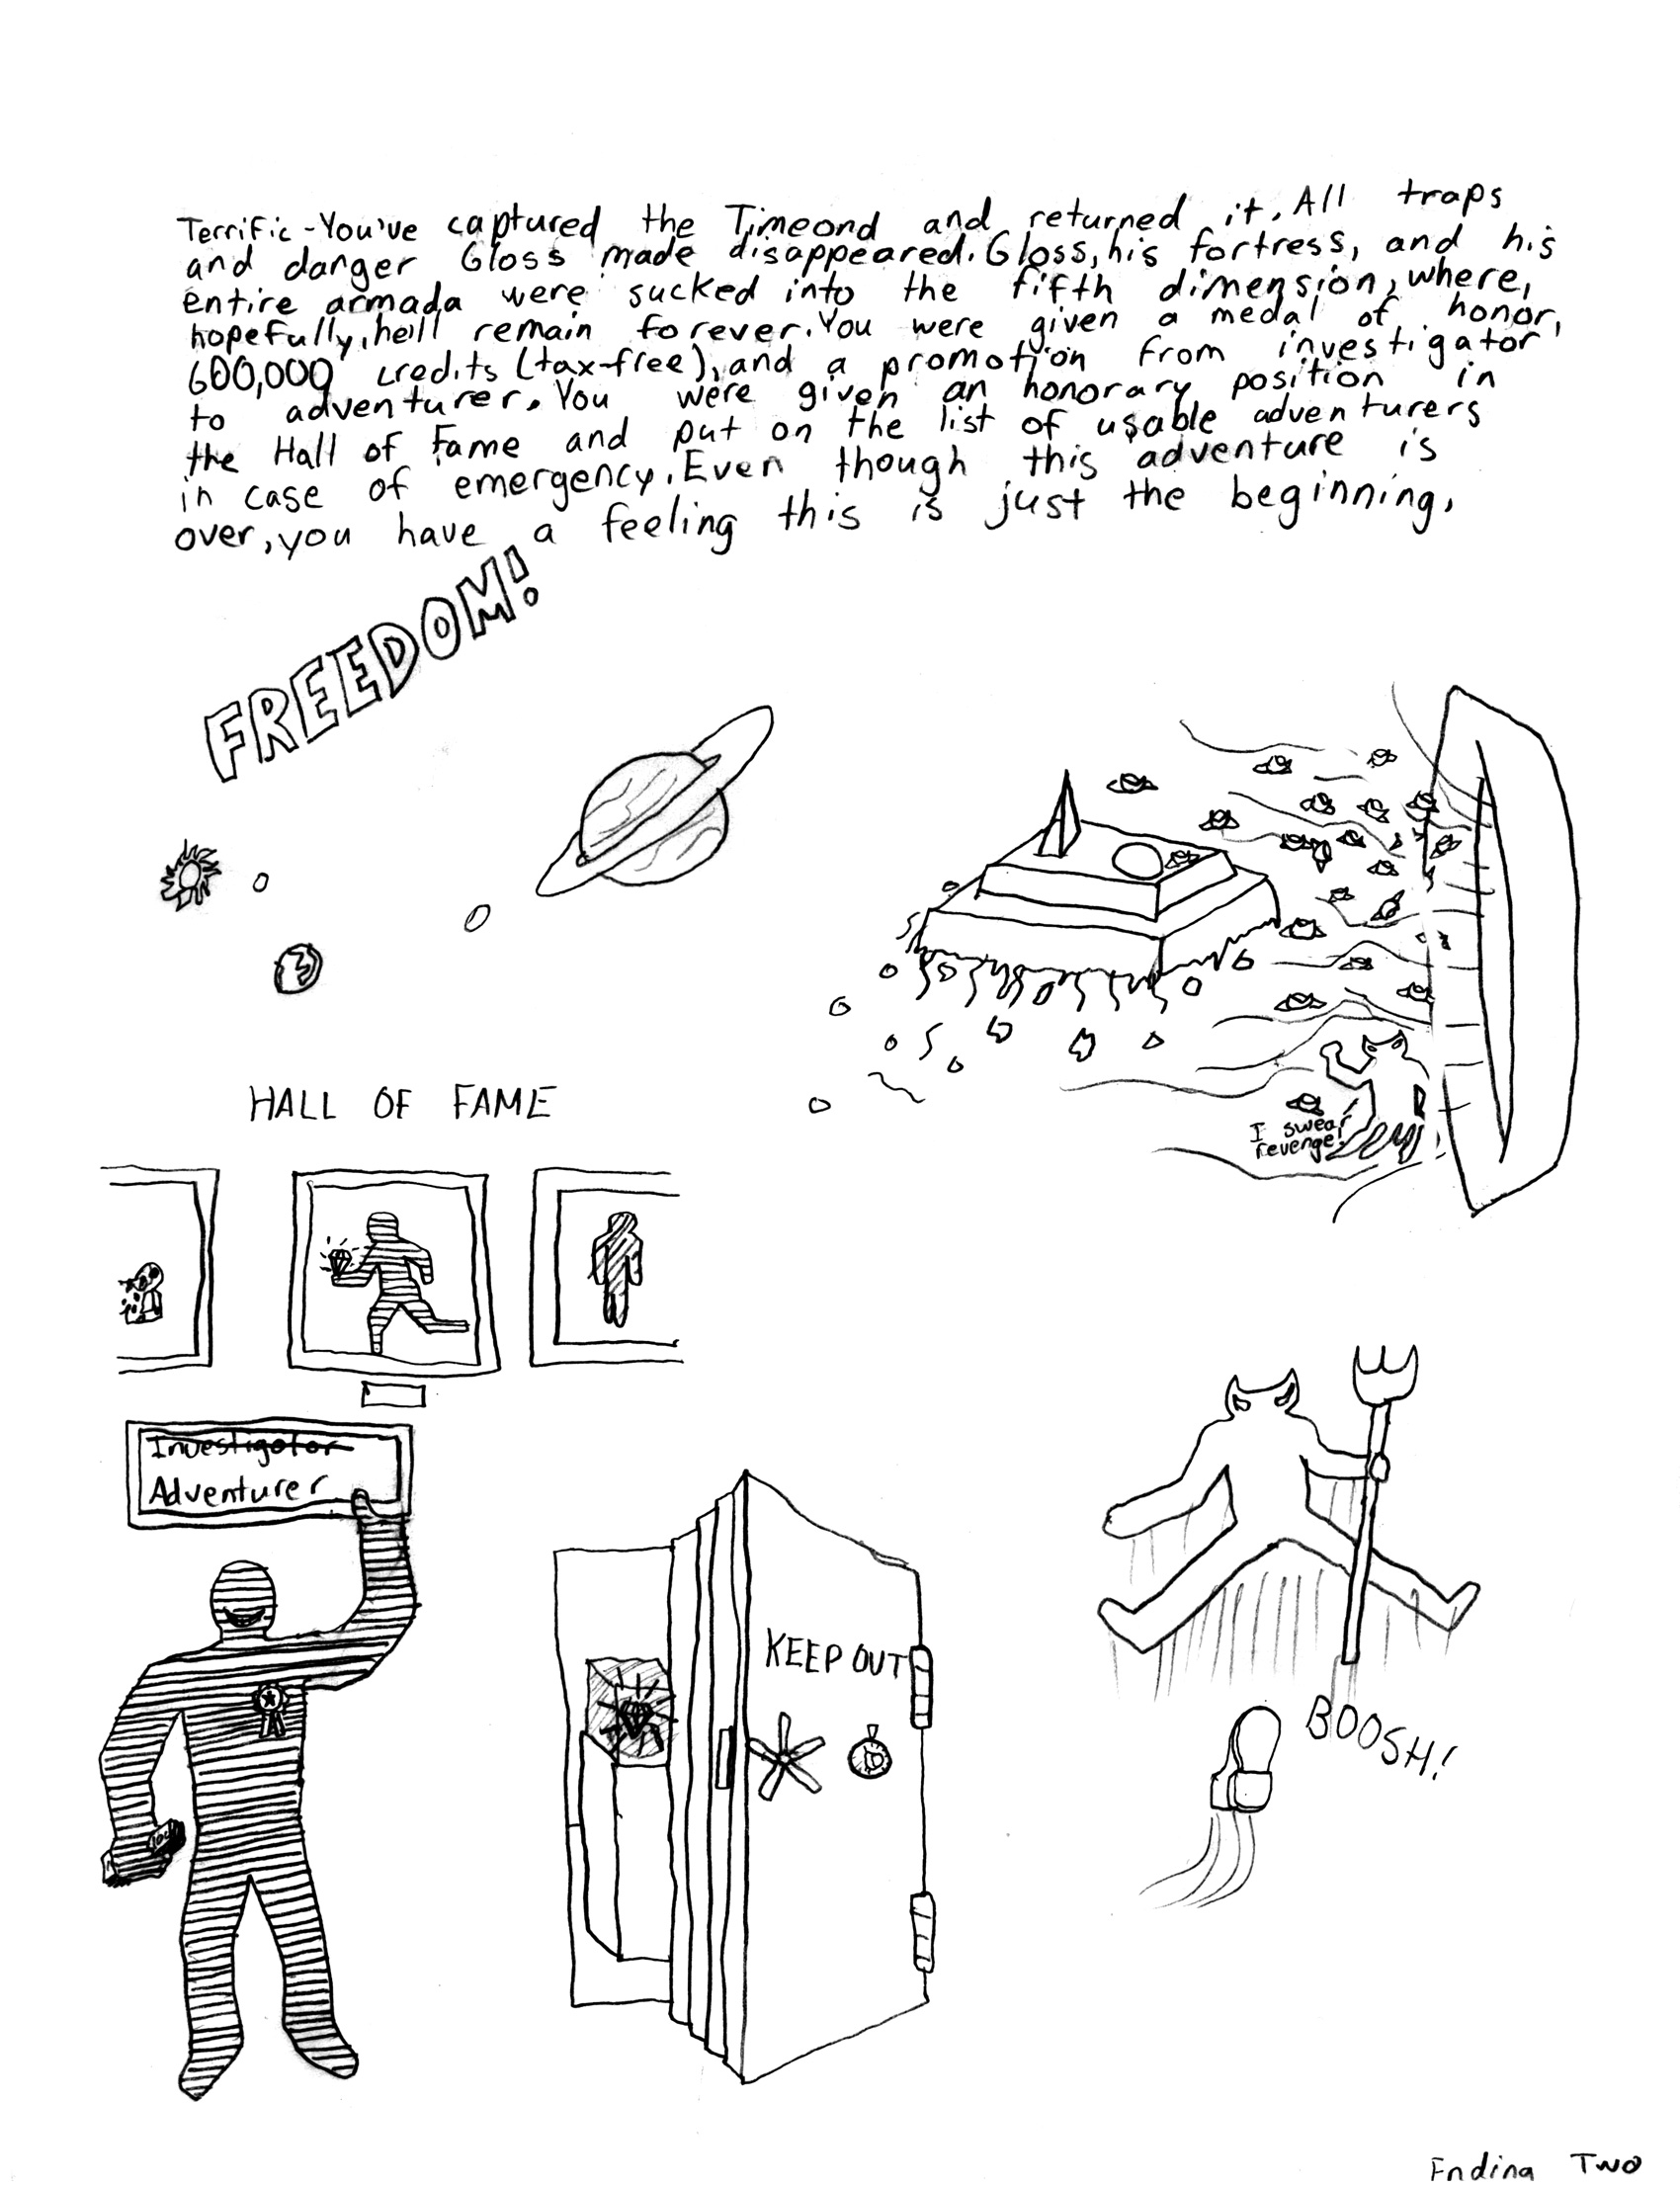 Terrific-You've captured the Timeond and returned it. All traps
and danger Gloss made disappeared. Gloss, his fortress, and his
entire armada were sucked into the fifth dimension, where,
hopefully, he'll remain forever. You were given a medal of honor,
600,000 credits (tax-free), and a promotion from investigator
to adventurer. You were given an honorary position in
the Hall of Fame and put on the list of usable adventurers
in case of emergency. Even though this adventure is
over, you have a feeling this is just the beginning.
FREEDOM!
I swear
revenge!
HALL OF FAME
Investigator
Adventurer
KEEP OUT
BOOSH!
Ending Two